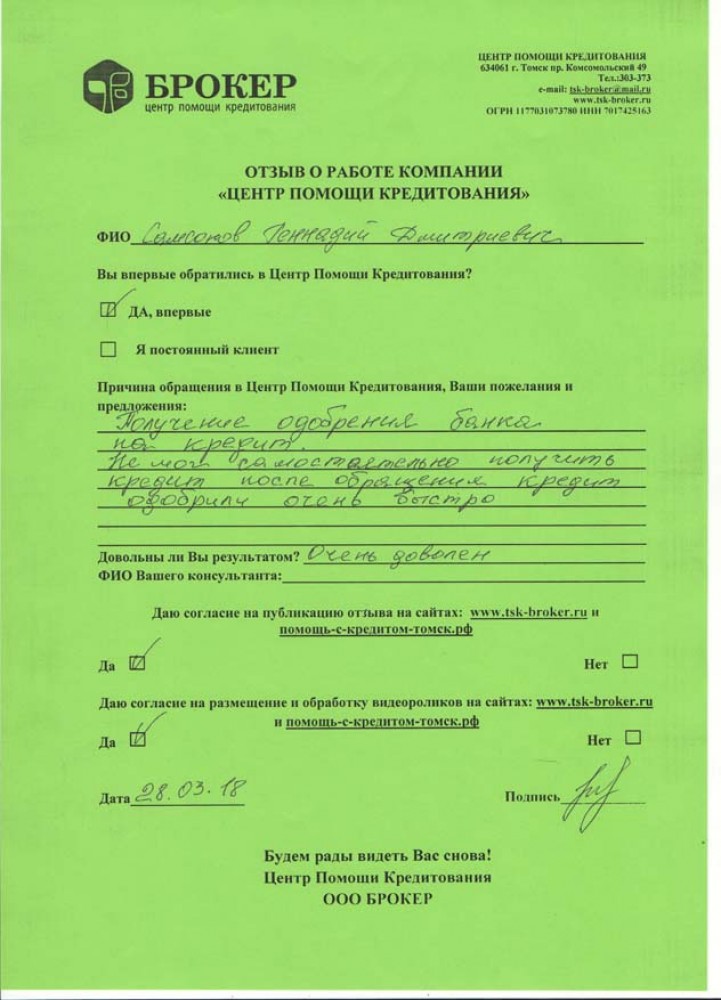 БРОКЕР
центр помощи кредитования
ЦЕНТР ПОМОЩИ КРЕДИТОВАНИЯ
634061 г. Томск пр. Комсомольский 49
Тел.:303-373
e-mail: tsk-broker@mail.ru
www.tsk-broker.ru
ОГРН 1177031073780 ИНН 7017425163
ОТЗЫВ О РАБОТЕ КОМПАНИИ
«ЦЕНТР ПОМОЩИ КРЕДИТОВАНИЯ»
ФИО Самсонов Геннадий Дмитриевич
Вы впервые обратились в Центр Помощи Кредитования?
ДА, впервые
Я постоянный клиент
Причина обращения в Центр Помощи Кредитования, Ваши пожелания и
предложения:
Получение одобрения банка
на кредит.
Не мог самостоятельно получить
кредит после обращения кредит
одобрили очень быстро
Довольны ли Вы результатом? Очень доволен
ФИО Вашего консультанта:
Даю согласие на публикацию отзыва на сайтах: www.tsk-broker.ru и
помощь-с-кредитом-томск.рф
Да Нет
Даю согласие на размещение и обработку видеороликов на сайтах: www.tsk-broker.ru
и помощь-с-кредитом-томск.рф
Да Нет
Дата 28.03.18 Подпись
Будем рады видеть Вас снова!
Центр Помощи Кредитования
ООО БРОКЕР